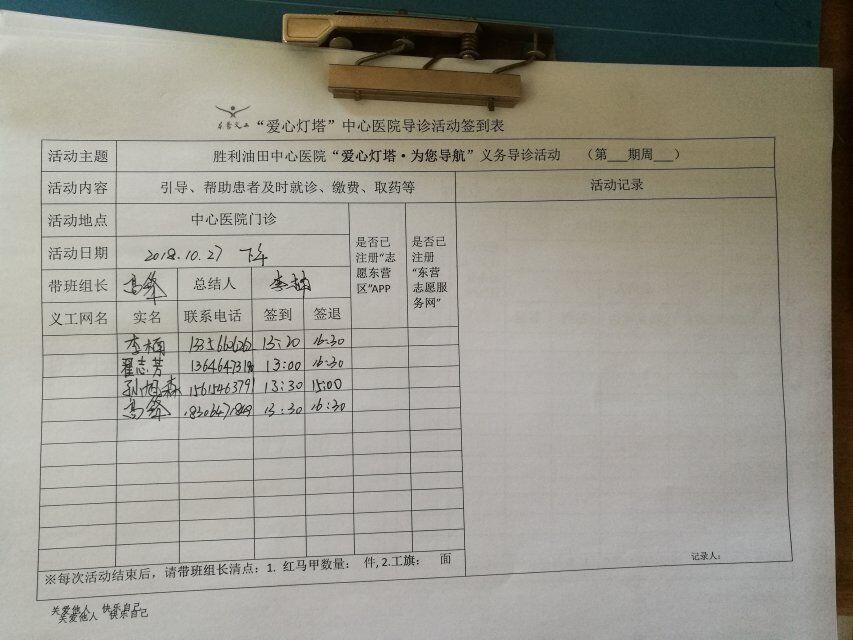 东营义工 “爱心灯塔”中心医院导诊活动签到表
活动主题 胜利油田中心医院“爱心灯塔·为您导航”义务导诊活动 （第___期周___）
活动内容 引导、帮助患者及时就诊、缴费、取药等 活动记录
活动地点 中心医院门诊
活动日期 2018.10.27 下午
是否已注册“志愿东营区”APP
是否已注册“东营志愿服务网”
带班组长 高锋 总结人 李楠
义工网名 实名 联系电话 签到 签退
李楠 13:20 16:30
翟志芳 13:00 16:30
孙旭森 13:30 15:00
高锋 13:30 16:30
※每次活动结束后，请带班组长清点：1. 红马甲数量： 件, 2.工旗： 面
记录人：
关爱他人 快乐自己
关爱他人 快乐自己